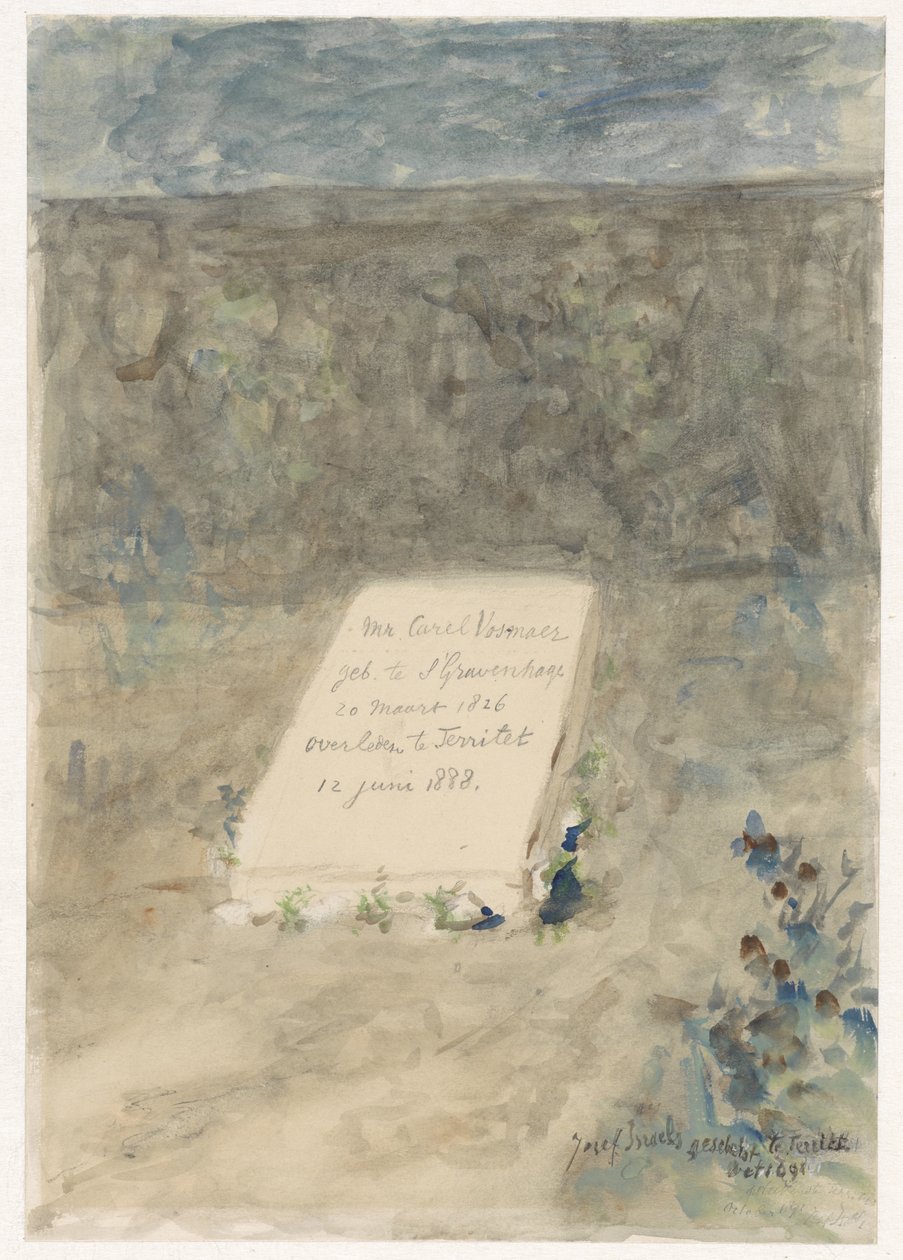 Mr. Carel Vosmaer
geb. te S'Gravenhage
20 Maart 1826
overleden te Territet
12 juni 1888.
Jozef Israels geschetst te Territet